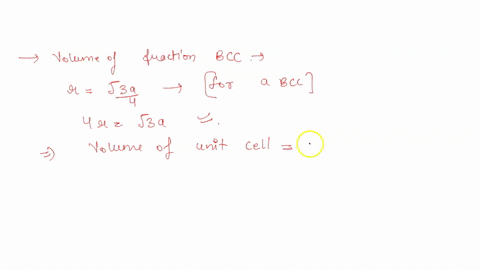 → Volume of fraction BCC →
r = √3a/4 → [for a BCC]
4r = √3a
⇒ Volume of unit cell =